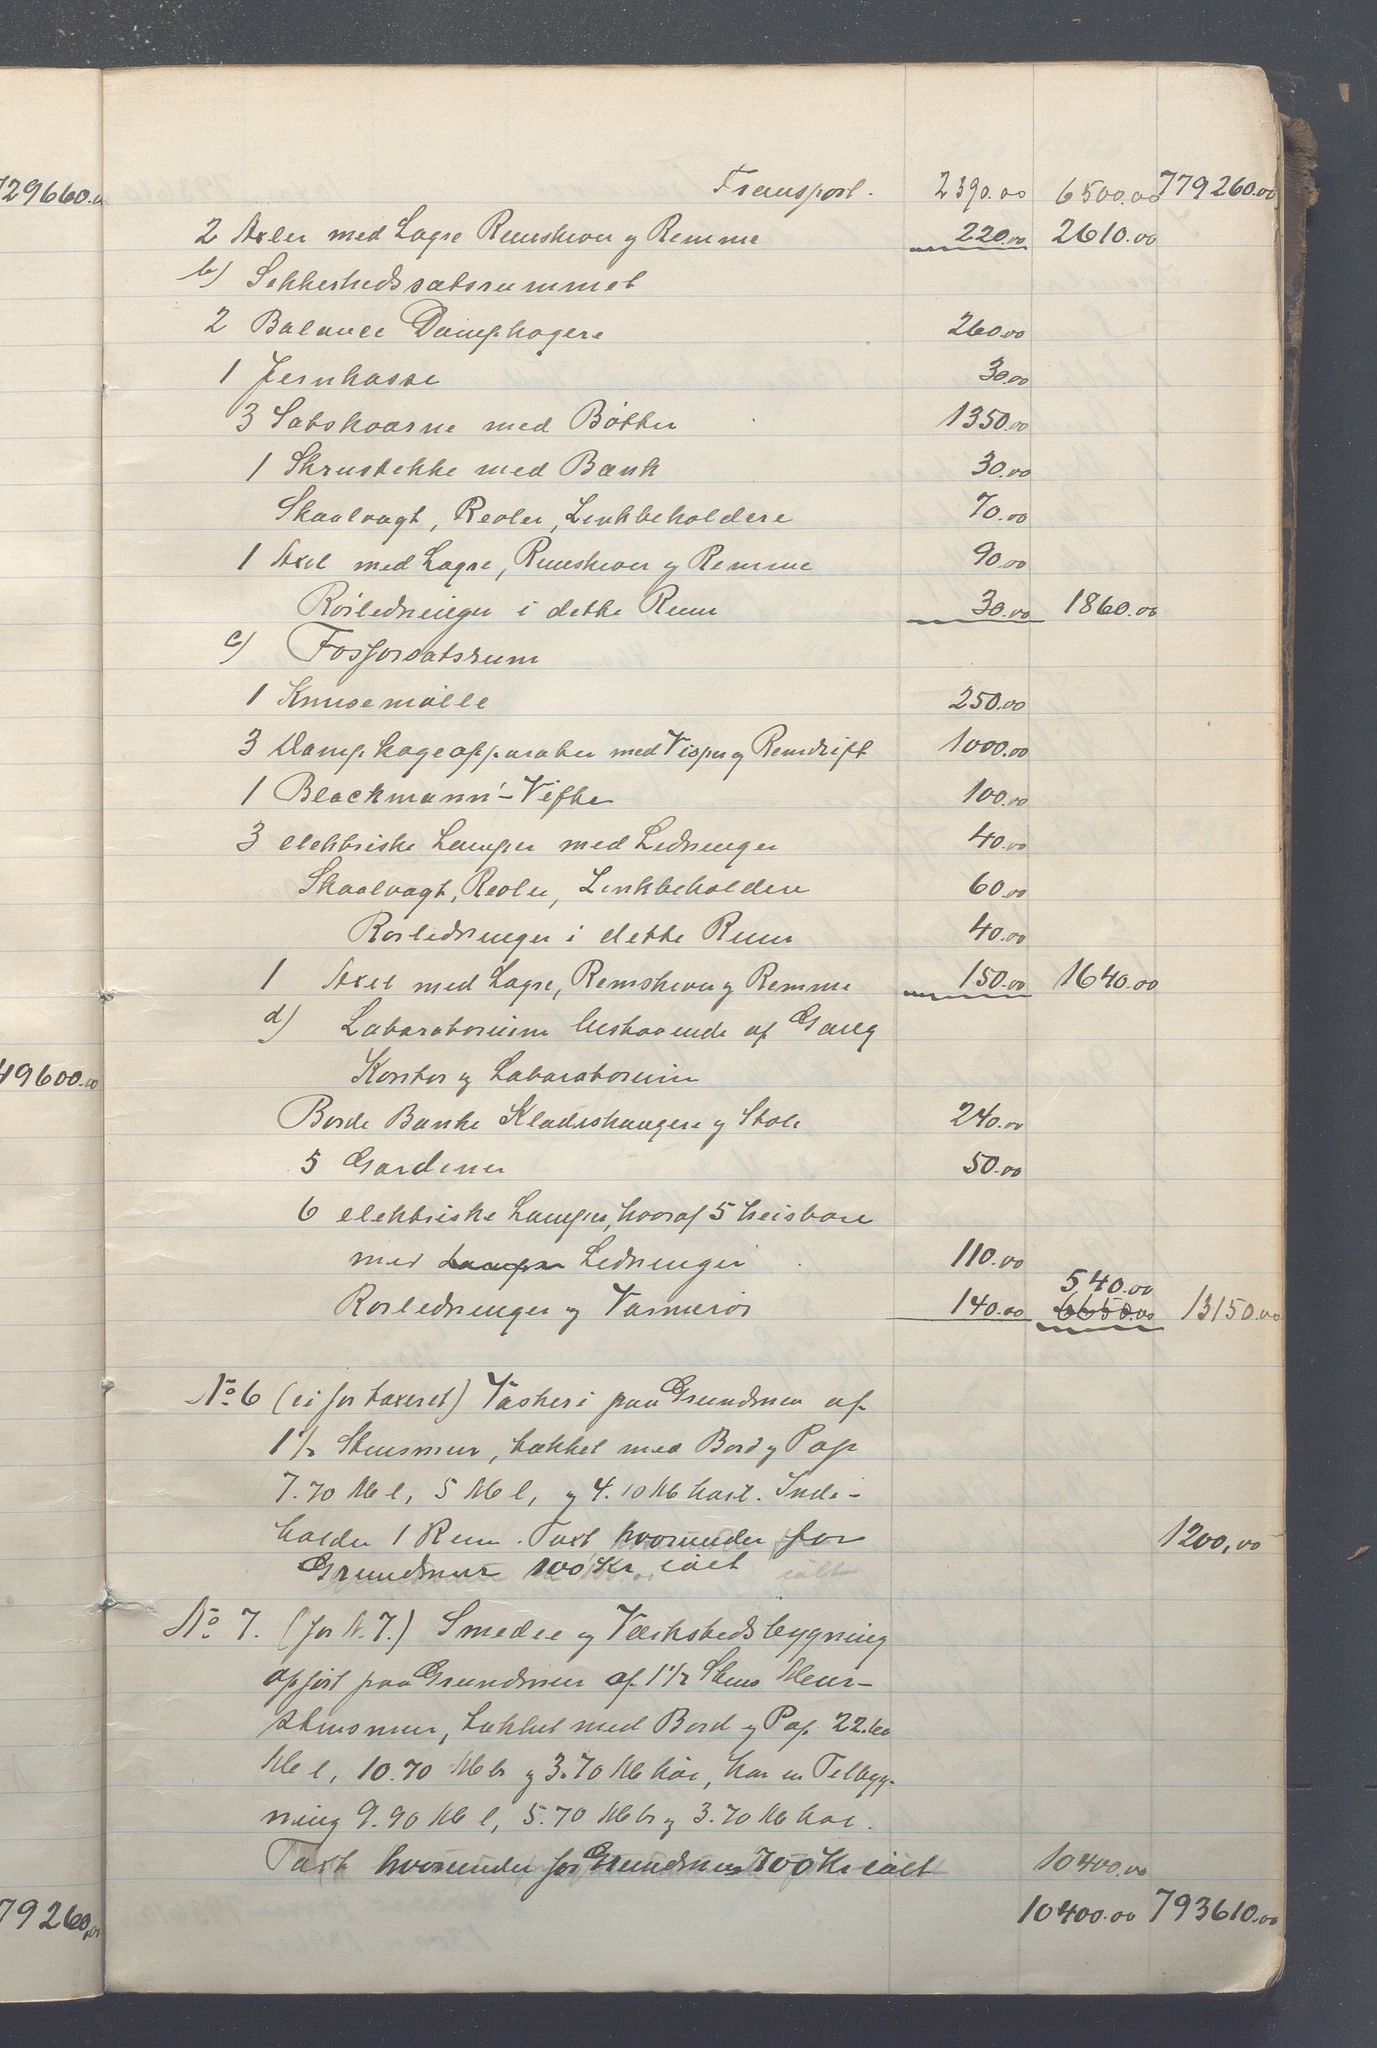 729660.00
Transport. 2390.00 6500.00 779260.00
2 Axler med Lagre Remskiver og Remme 220.00 2610.00
b) Sikkerhedssatsrummet
2 Balance Dampkogere 260.00
1 Jernkasse 30.00
3 Satskværne med Bøtter 1350.00
1 Skrustikke med Bænk 30.00
Skaalvægt, Reoler, Zinkbeholdere 70.00
1 Axel med Lagre, Remskiver og Remme 90.00
Rørledninger i dette Rum 30.00 1860.00
c) Fosforsatsrum
1 Knusemølle 250.00
3 Dampkogeapparater med Visper og Remdrift 1000.00
1 Blackmann's-Vifte 100.00
3 elektriske Lamper med Ledninger 40.00
Skaalvægt, Reoler, Zinkbeholdere 60.00
Rørledninger i dette Rum 40.00
1 Axel med Lagre, Remskiver og Remme 150.00 1640.00
d) Laboratorium bestaaende af Gang
49600.00
Kontor og Laboratorium
Borde Bænke Klædeshængere og Stole 240.00
5 Gardener 50.00
6 elektriske Lamper, hvoraf 5 heisbare
med Lamper Ledninger 110.00
540.00
Rørledninger og Varmerør 140.00 6650.00 13150.00
No 6 (ei før taxeret) Vaskeri paa Grundmur af
1 1/2 Stensmur, tækket med Bord og Pap
7.70 M l, 5 M l, og 4.10 M høit. Inde-
holder 1 Rum. Taxt hvorunder for 1200,00
Grundmur 100 Kr ialt
No 7. (før N. 7.) Smedie og Værkstedsbygning
opført paa Grundmur af 1 1/2 Stens Mur-
stensmur, tækket med Bord og Pap 22.60
M l, 10.70 M br og 3.70 M høi, har en Tilbyg-
ning 9.90 M l, 5.70 M br og 3.70 M høi.
Taxt hvorunder for Grundmur 700 Kr ialt 10400.00
79260.00
10400.00 793610.00